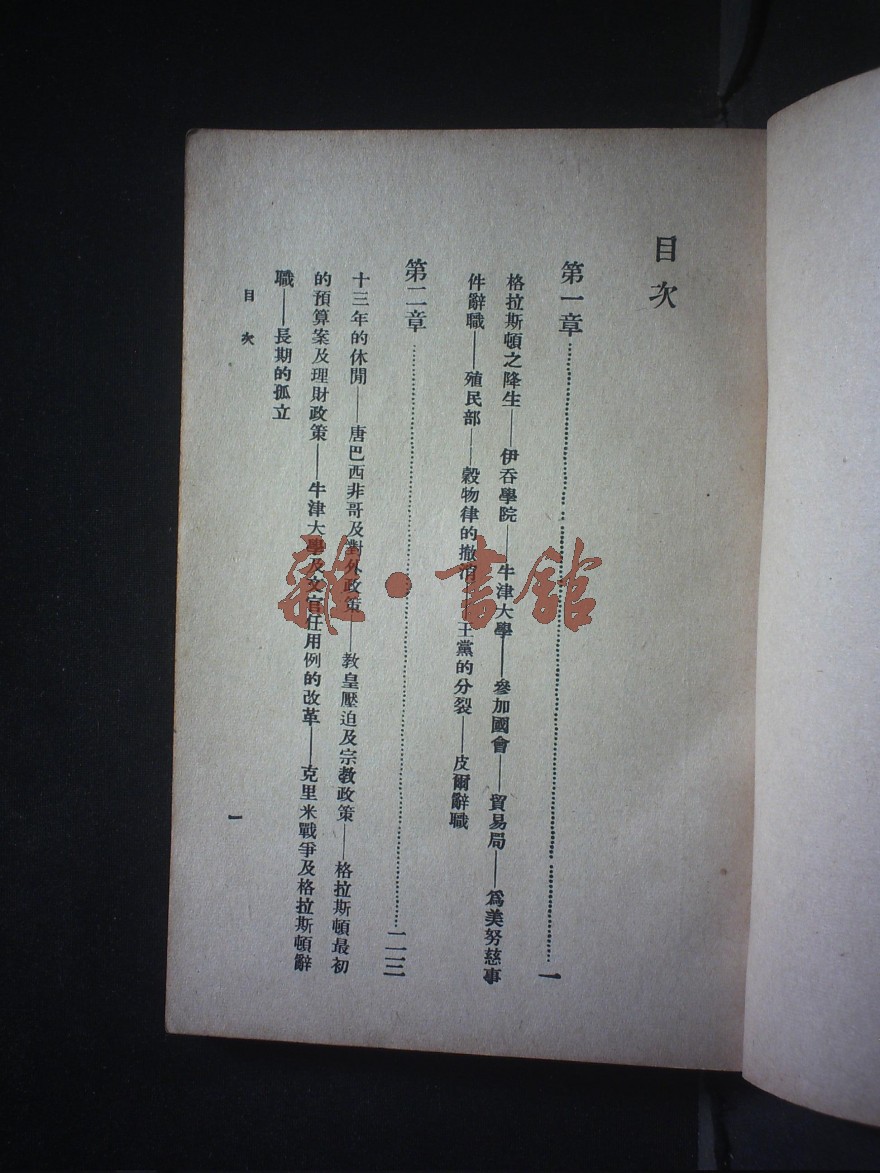 目次
第一章……一
格拉斯頓之降生——伊吞學院——牛津大學——參加國會——貿易局——爲美努慈事
件辭職——殖民部——穀物律的撤消——王黨的分裂——皮爾辭職
第二章……二三
十三年的休閒——唐巴西非哥及對外政策——教皇壓迫及宗教政策——格拉斯頓最初
的預算案及理財政策——牛津大學及文官任用例的改革——克里米戰爭及格拉斯頓辭
職——長期的孤立
目次
一
雜·書館